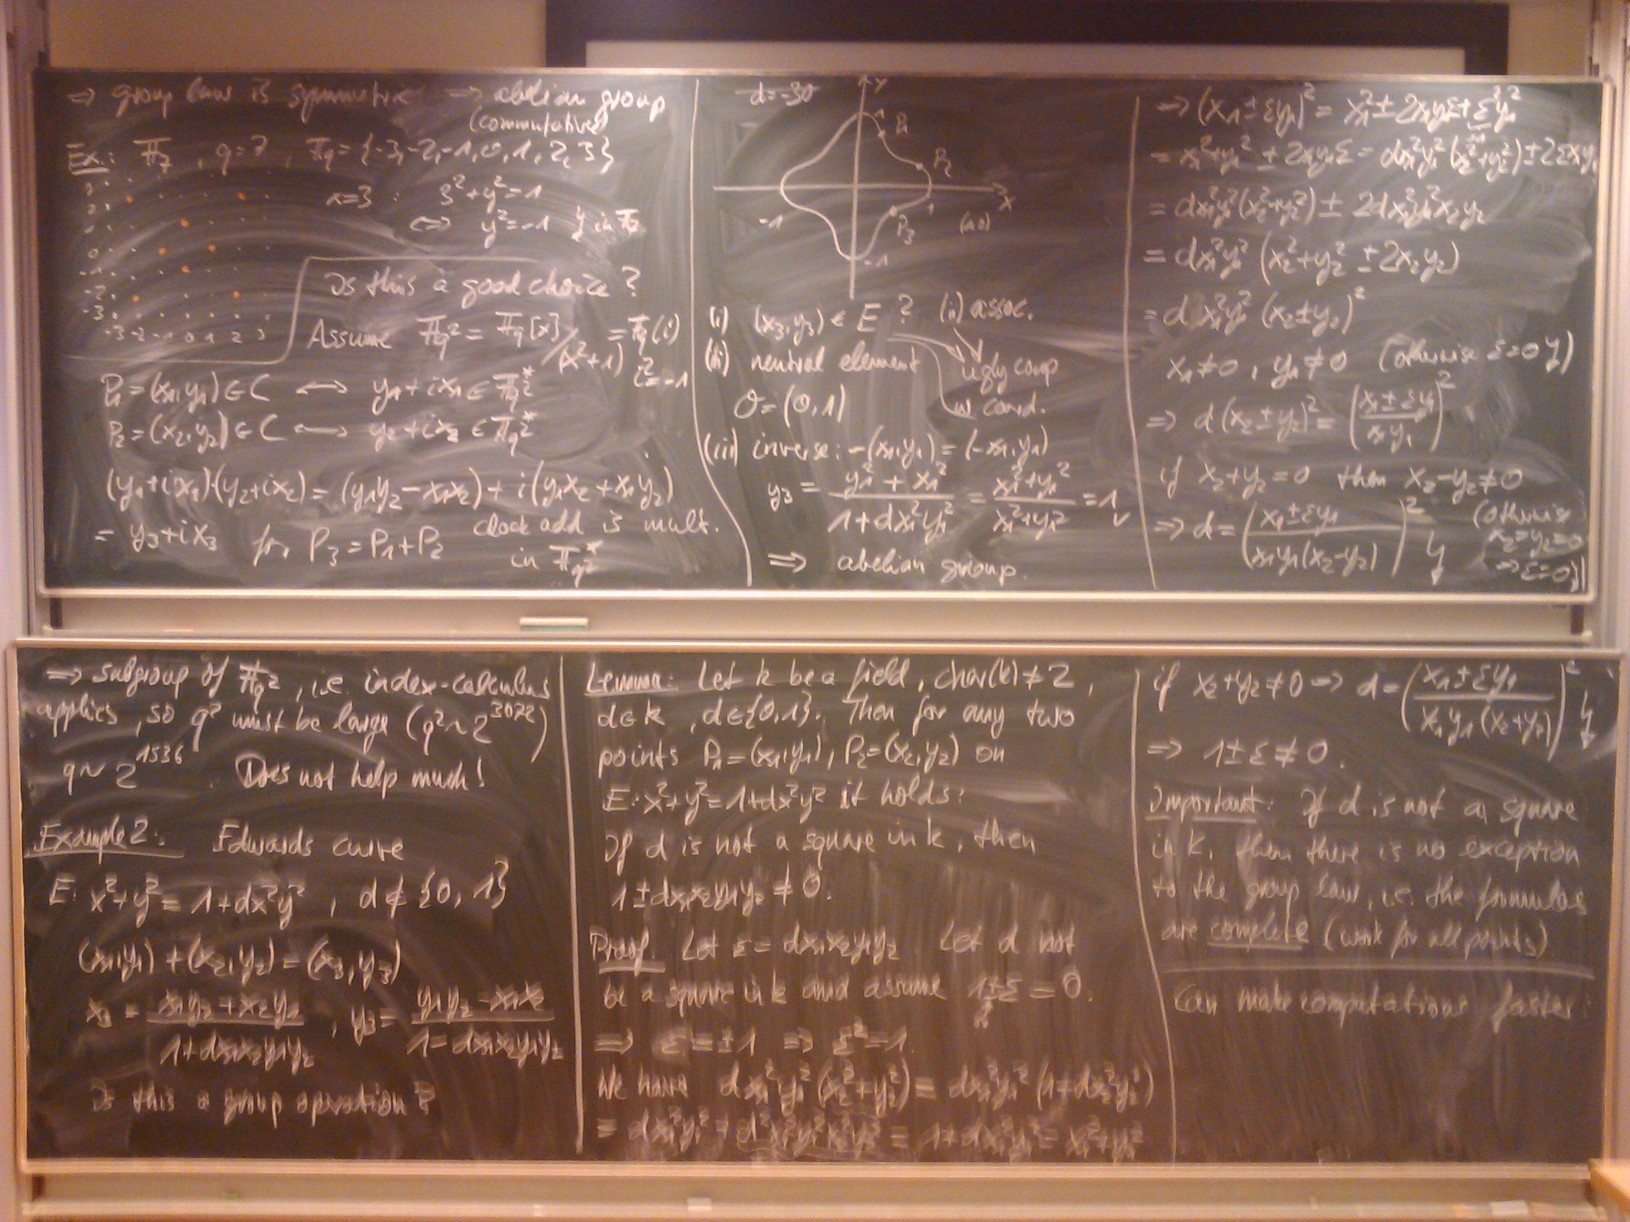 ⇒ group law is symmetric ⇒ abelian group
(commutative)
Ex.: 𝔽₇, q=7, 𝔽q = {-3,-2,-1,0,1,2,3}
x=3: 3²+y²=1
⇔ y²=-1 ↯ in 𝔽₇
3
2
1
0
-1
-2
-3
-3 -2 -1 0 1 2 3
Is this a good choice?
Assume 𝔽q² = 𝔽q[x]/(x²+1) = 𝔽q(i)
i²=-1
P₁=(x₁,y₁)∈C ↔ y₁+ix₁ ∈ 𝔽q²*
P₂=(x₂,y₂)∈C ↔ y₂+ix₂ ∈ 𝔽q²*
(y₁+ix₁)·(y₂+ix₂) = (y₁y₂-x₁x₂)+i(y₁x₂+x₁y₂)
= y₃+ix₃ for P₃=P₁+P₂ clock add is mult.
in 𝔽q²*
d=-30
y
1
P₁
P₂
x
-1
1
P₃
(1,0)
-1
(i) (x₃,y₃) ∈ E ? (ii) assoc.
(ii) neutral element ugly comp
O=(0,1) w cond.
(iii) inverse: -(x₁,y₁) = (-x₁,y₁)
y₃ = (y₁²+x₁²)/(1+dx₁²y₁²) = (x₁²+y₁²)/(x₁²+y₁²) = 1 ✓
⇒ abelian group.
⇒ (x₁±εy₁)² = x₁²±2x₁y₁ε+ε²y₁²
= x₁²+y₁² ± 2x₁y₁ε = dx₁²y₁²(x₂²+y₂²)±2εx₁y₁
= dx₁²y₁²(x₂²+y₂²) ± 2dx₁²y₁²x₂y₂
= dx₁²y₁² (x₂²+y₂² ± 2x₂y₂)
= dx₁²y₁² (x₂±y₂)²
x₁≠0, y₁≠0 (otherwise ε=0 ↯)
⇒ d(x₂±y₂)² = ((x₁±εy₁)/(x₁y₁))²
if x₂+y₂=0 then x₂-y₂≠0
⇒ d = ((x₁±εy₁)/(x₁y₁(x₂-y₂)))² ↯ (otherwise
x₂=y₂=0
⇒ ε=0 ↯)
⇒ subgroup of 𝔽q², i.e. index-calculus
applies, so q² must be large (q²~2³⁰⁷²)
q~2¹⁵³⁶. Does not help much!
Example 2: Edwards curve
E: x²+y²=1+dx²y², d∉{0,1}
(x₁,y₁)+(x₂,y₂)=(x₃,y₃)
x₃ = (x₁y₂+x₂y₁)/(1+dx₁x₂y₁y₂), y₃ = (y₁y₂-x₁x₂)/(1-dx₁x₂y₁y₂)
Is this a group operation?
Lemma: Let k be a field, char(k)≠2,
d∈k, d∈{0,1}. Then for any two
points P₁=(x₁,y₁), P₂=(x₂,y₂) on
E: x²+y²=1+dx²y² it holds:
If d is not a square in k, then
1±dx₁x₂y₁y₂ ≠ 0.
Proof. Let ε = dx₁x₂y₁y₂ Let d not
be a square in k and assume 1±ε = 0.
⇒ ε=±1 ⇒ ε²=1.
We have dx₁²y₁²(x₂²+y₂²) = dx₁²y₁²(1+dx₂²y₂²)
= dx₁²y₁²+d²x₁²y₁²x₂²y₂² = 1+dx₁²y₁² = x₁²+y₁²
if x₂+y₂≠0 ⇒ d = ((x₁±εy₁)/(x₁y₁(x₂+y₂)))² ↯
⇒ 1±ε≠0.
Important: If d is not a square
in k, then there is no exception
to the group law, i.e. the formulas
are complete (work for all points)
Can make computations faster: